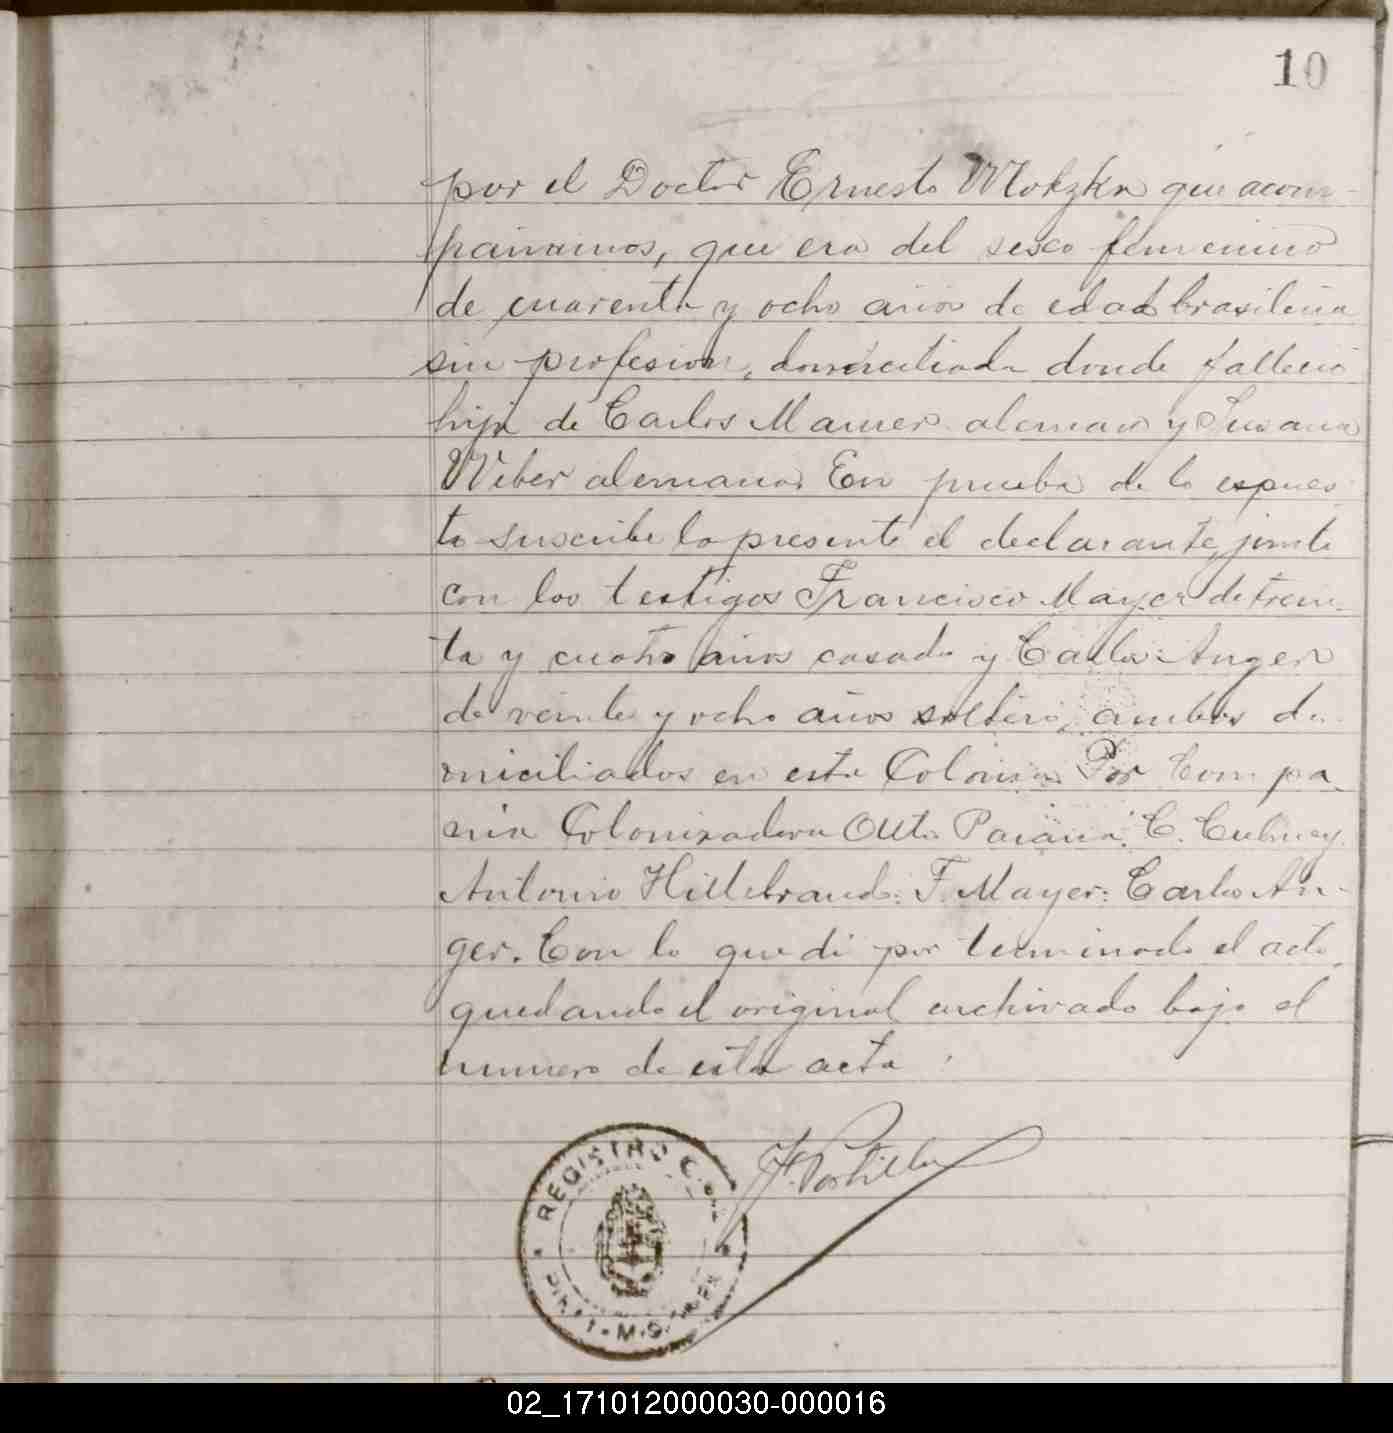 10
por el Doctor Ernesto que acom-
pañamos, que era del sexo femenino
de cuarenta y ocho años de edad brasileña
sin profesion, domiciliada donde fallecio
hija de Carlos Mamer aleman y Susana
Weber alemana. En prueba de lo espues-
to suscribe la presente el declarante, junto
con los testigos Francisco Mayer de trein-
ta y cuatro años casado y Carlos Anger
de veinte y ocho años soltero, ambos do-
miciliados en esta Colonia. Por Compa-
ñia Colonizadora Alto Paraná: C.
Antonio Hillebrand: F. Mayer: Carlos An-
ger. Con lo que di por terminado el acto
quedando el original archivado bajo el
numero de esta acta.
REGISTRO
02_171012000030-000016